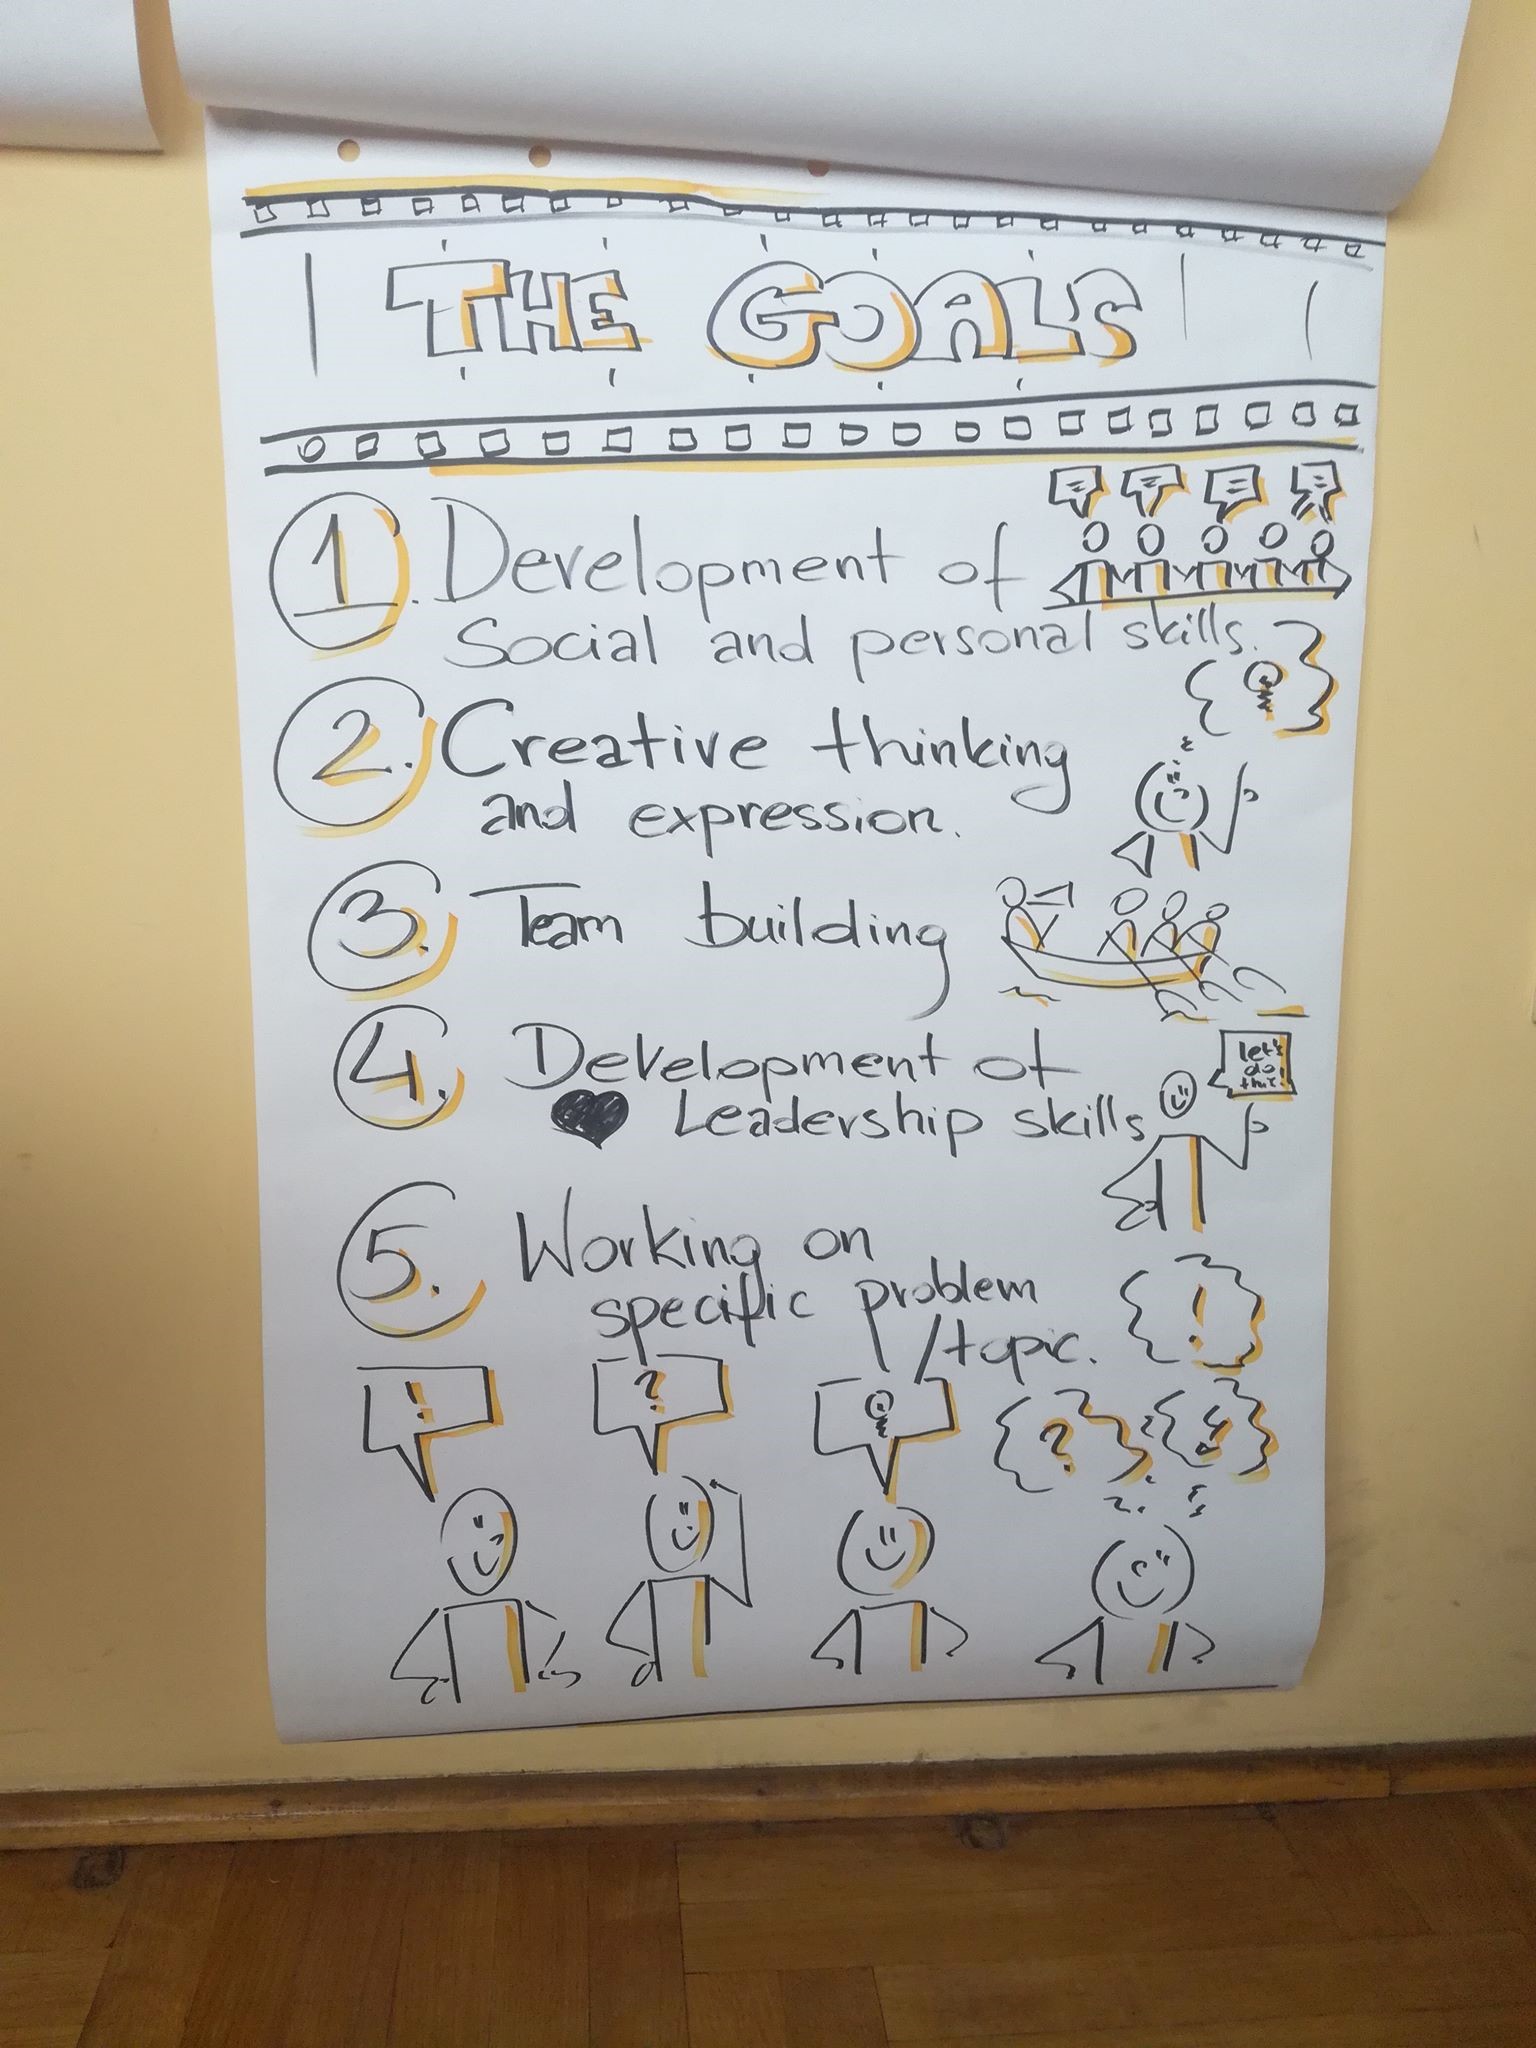 THE GOALS
1. Development of
Social and personal skills.
2. Creative thinking
and expression.
3. Team building
4. Development of
Leadership skills
let's
do
this!
5. Working on
specific problem
/topic.
! ? ! ?